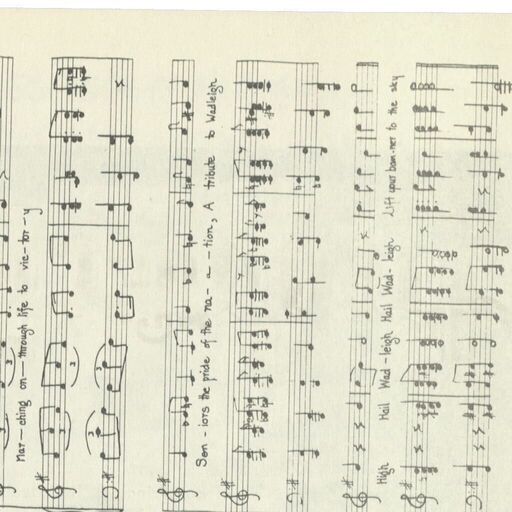 Mar-ching on- through life to vic-tor-y
Sen-iors the pride of the na-a-tion, A tribute to Wadleigh
High Hail Wad-leigh Hail Wad-leigh. Lift your ban-ner to the sky